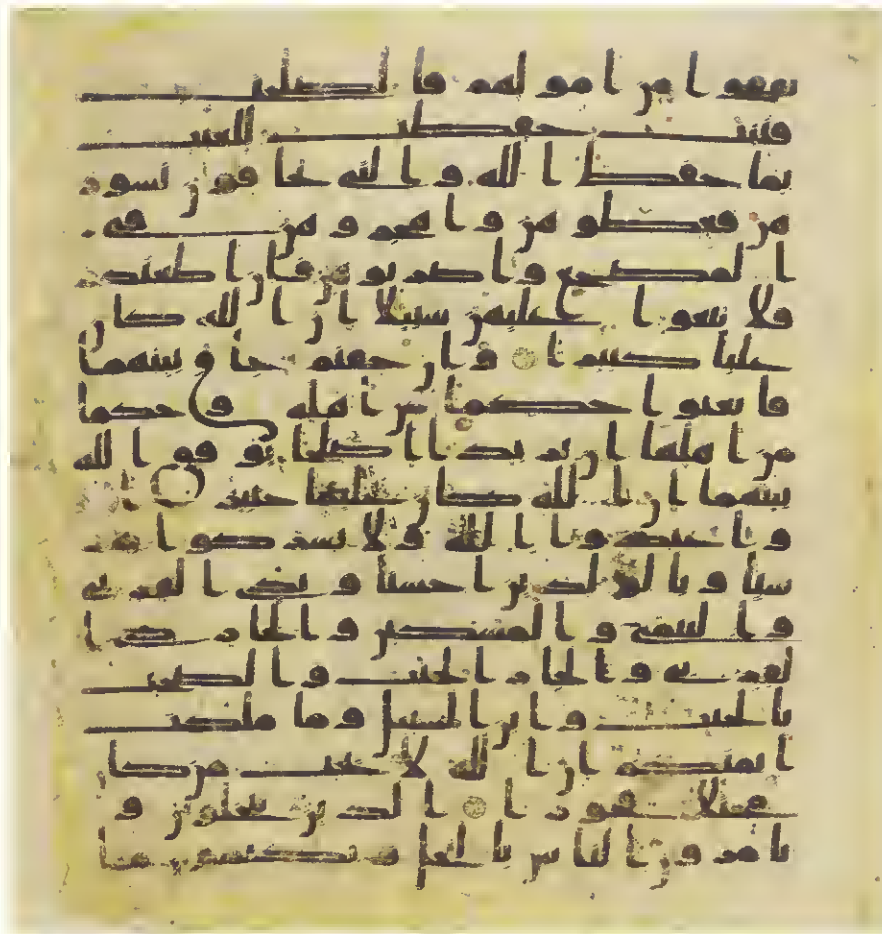 نفقوا من امولهم فالصلحت
قنتت حفظت للغيب
بما حفظ الله والتي تخافون نشوز
هن فعظوهن واهجروهن في
المضجع واضربوهن فان اطعنكم
فلا تبغوا عليهن سبيلا ان الله كان
عليا كبيرا وان خفتم شقاق بينهما
فابعثوا حكما من اهله وحكما
من اهلها ان يريدا اصلحا يوفق الله
بينهما ان الله كان عليما خبيرا
واعبدوا الله ولا تشركوا به
شيا وبالولدين احسنا وبذي القربى
واليتمى والمسكين والجار ذي ا
لقربى والجار الجنب والصحب
بالجنب وابن السبيل وما ملكت
ايمنكم ان الله لا يحب من كان
مختالا فخورا الذين يبخلون و
يامرون الناس بالبخل ويكتمون ما